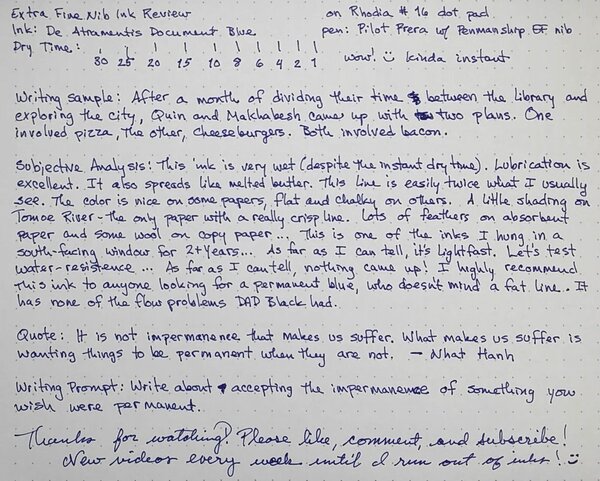 Extra Fine Nib Ink Review on Rhodia #16 dot pad
Ink: De Atramentis Document Blue pen: Pilot Prera w/ Penmanship EF nib
Dry Time: 30 25 20 15 10 8 6 4 2 1 wow! kinda instant
Writing sample: After a month of dividing their time between the library and
exploring the city, Quin and Makhabesh came up with two plans. One
involved pizza, the other, cheeseburgers. Both involved bacon.
Subjective Analysis: This ink is very wet (despite the instant dry time). Lubrication is
excellent. It also spreads like melted butter. This line is easily twice what I usually
see. The color is nice on some papers, flat and chalky on others. A little shading on
Tomoe River - the only paper with a really crisp line. Lots of feathers on absorbent
paper and some wool on copy paper... This is one of the inks I hung in a
south-facing window for 2+ years... As far as I can tell, it's lightfast. Let's test
water-resistence... As far as I can tell, nothing came up! I highly recommend
this ink to anyone looking for a permanent blue, who doesn't mind a fat line. It
has none of the flow problems DAD Black had.
Quote: It is not impermanence that makes us suffer. What makes us suffer is
wanting things to be permanent when they are not. - Nhat Hanh
Writing Prompt: Write about accepting the impermanence of something you
wish were permanent.
Thanks for watching! Please like, comment, and subscribe!
New videos every week until I run out of inks!